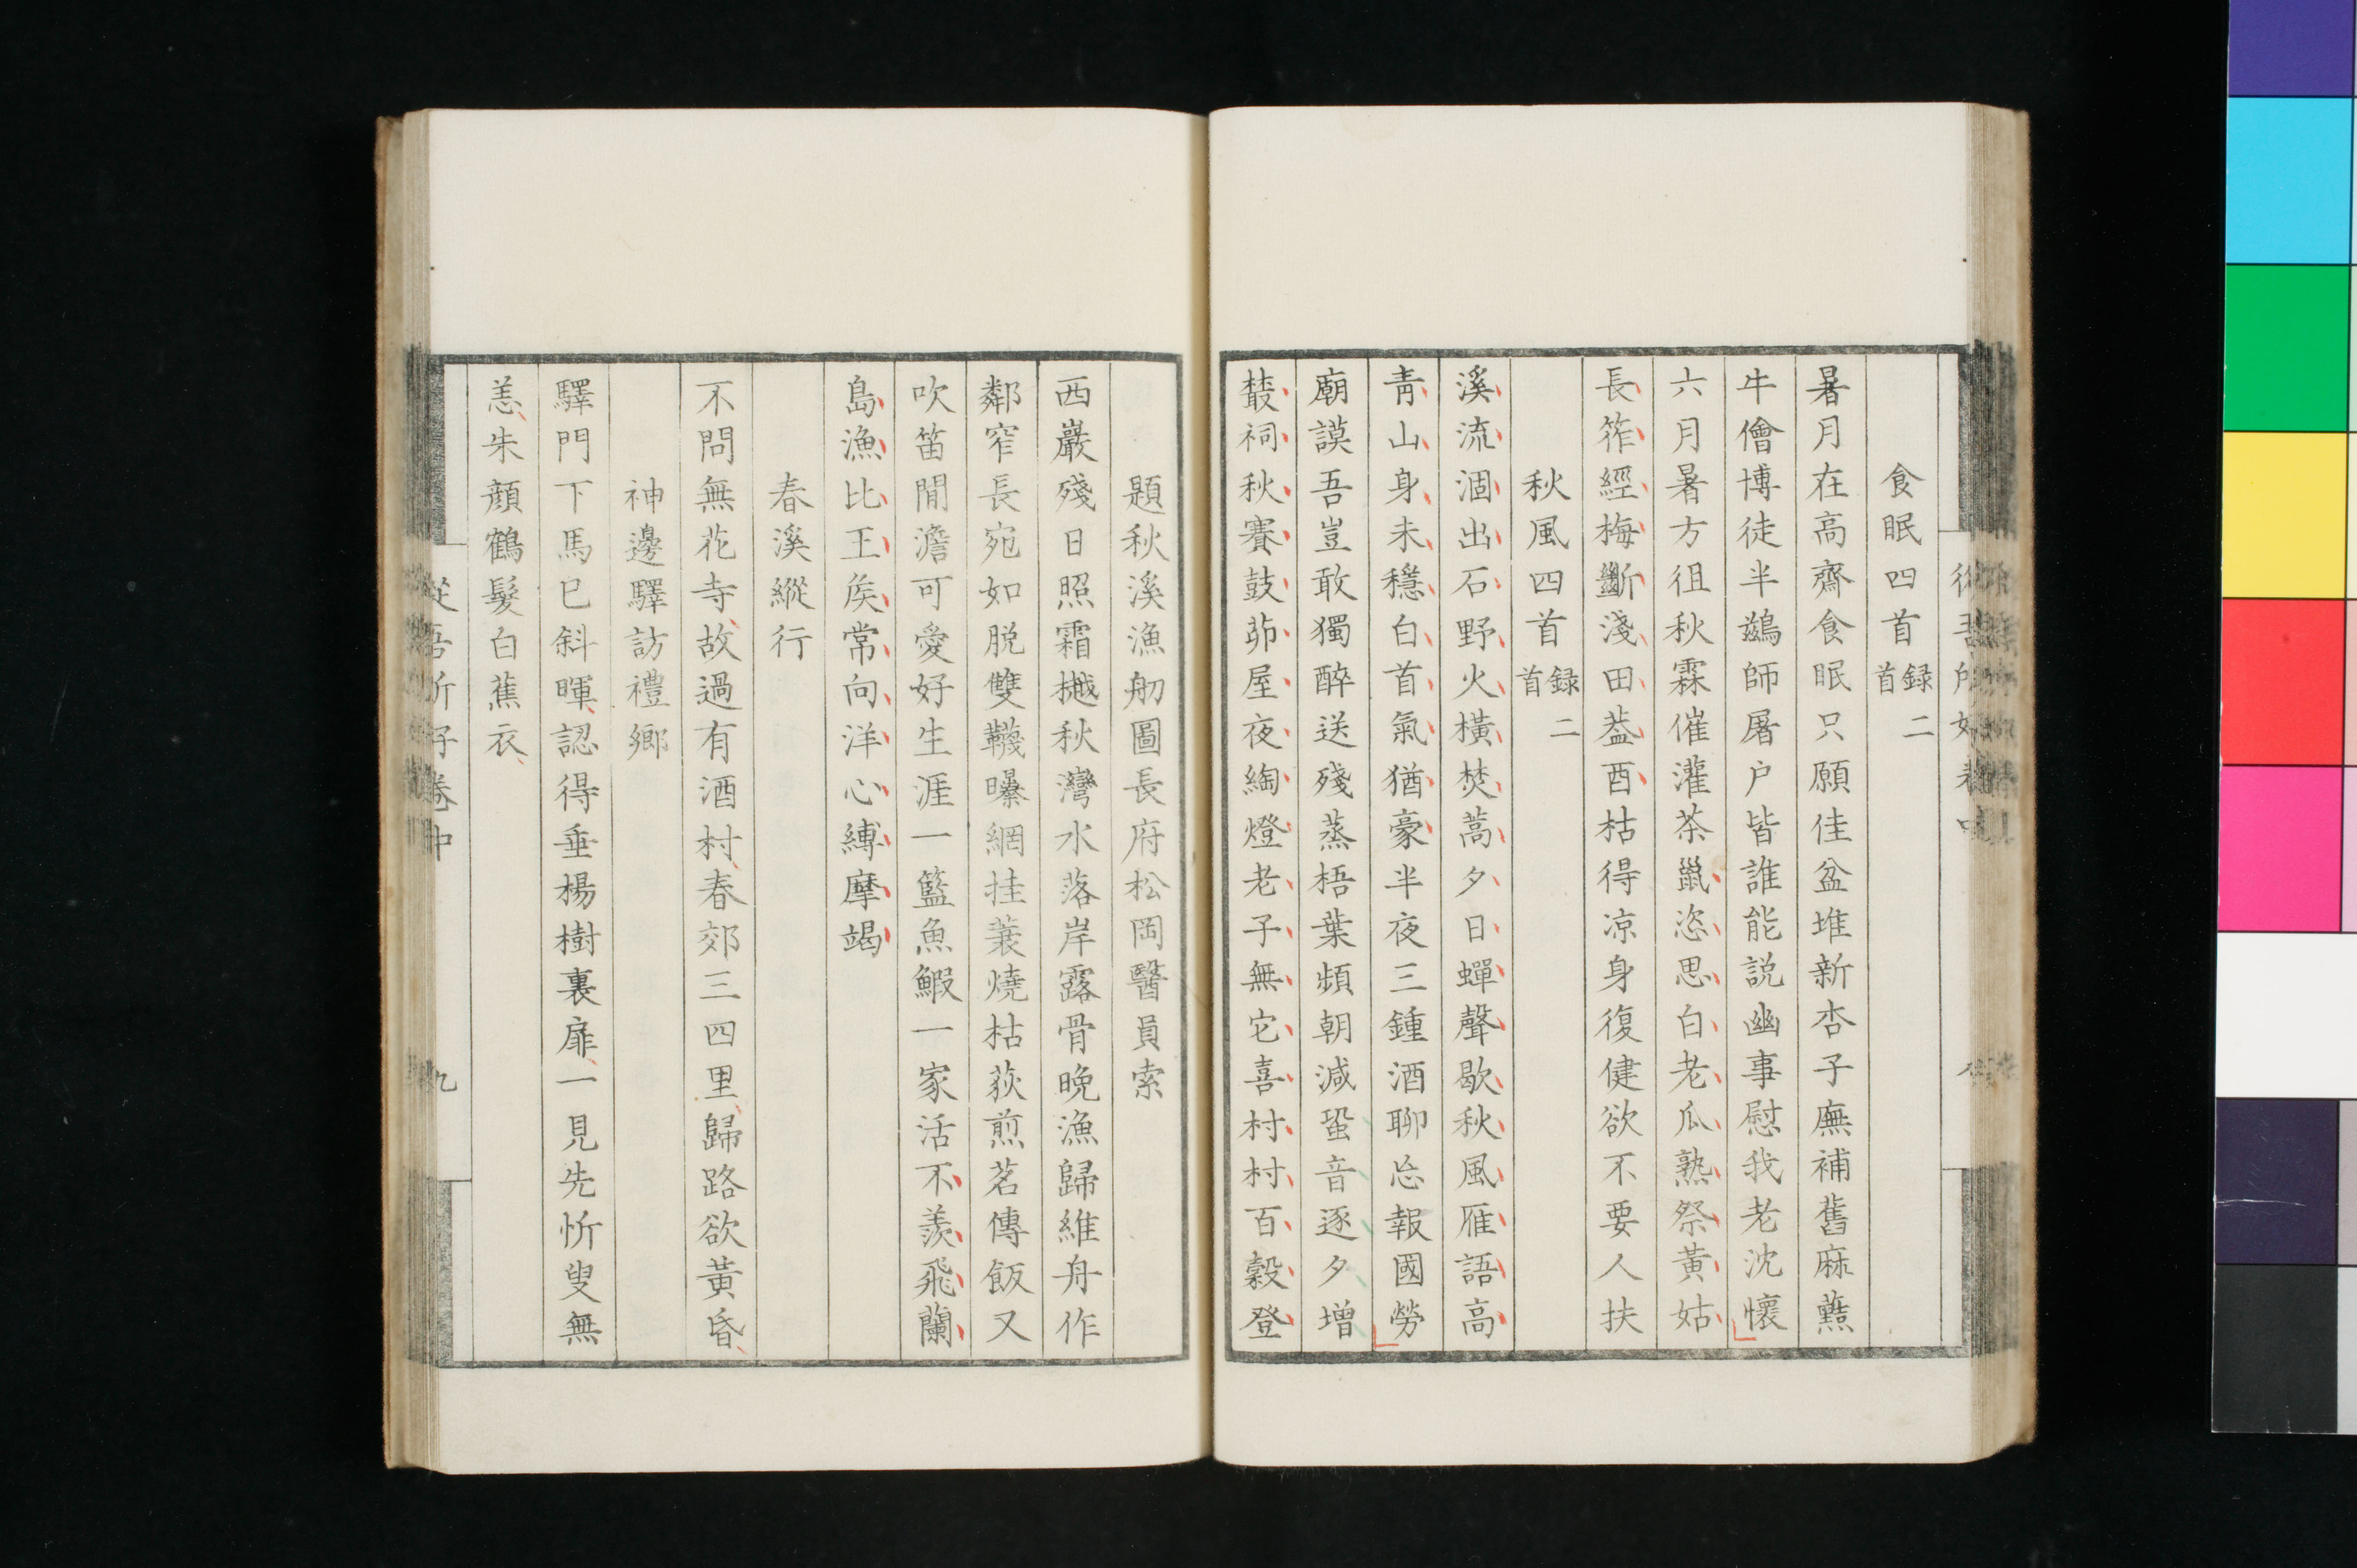 食眠四首録二首
暑月在高齋食眠只願佳盆堆新杏子廡補舊麻藍
牛儈博徒半鷀師屠户皆誰能説幽事慰我老沈懷
六月暑方徂秋霖催灌荼巤恣思白老瓜熟祭黄姑
長筰經梅斷淺田葢酉枯得凉身復健欲不要人扶
秋風四首録二首
溪流涸出石野火橫焚蒿夕日蟬聲歇秋風雁語高
青山身未穩白首氣猶豪半夜三鍾酒聊忘報國勞
廟謨吾豈敢獨醉送殘蒸梧葉頻朝減蛩音逐夕增
藂祠秋賽鼓茆屋夜綯燈老子無它喜村村百穀登
題秋溪漁舠圖長府松岡醫員索
西巖殘日照霜樾秋灣水落岸露骨晚漁歸維舟作
鄰窄長宛如脱雙韈曝網挂蓑燒枯荻煎茗傳飯又
吹笛閒澹可愛好生涯一籃魚鰕一家活不羨飛蘭
島漁比王矦常向洋心縛摩竭
春溪縱行
不問無花寺故過有酒村春郊三四里歸路欲黄昏
神邊驛訪禮卿
驛門下馬已斜暉認得垂楊樹裏扉一見先忻叟無
恙朱顔鶴髮白蕉衣
從吾所好卷中
九